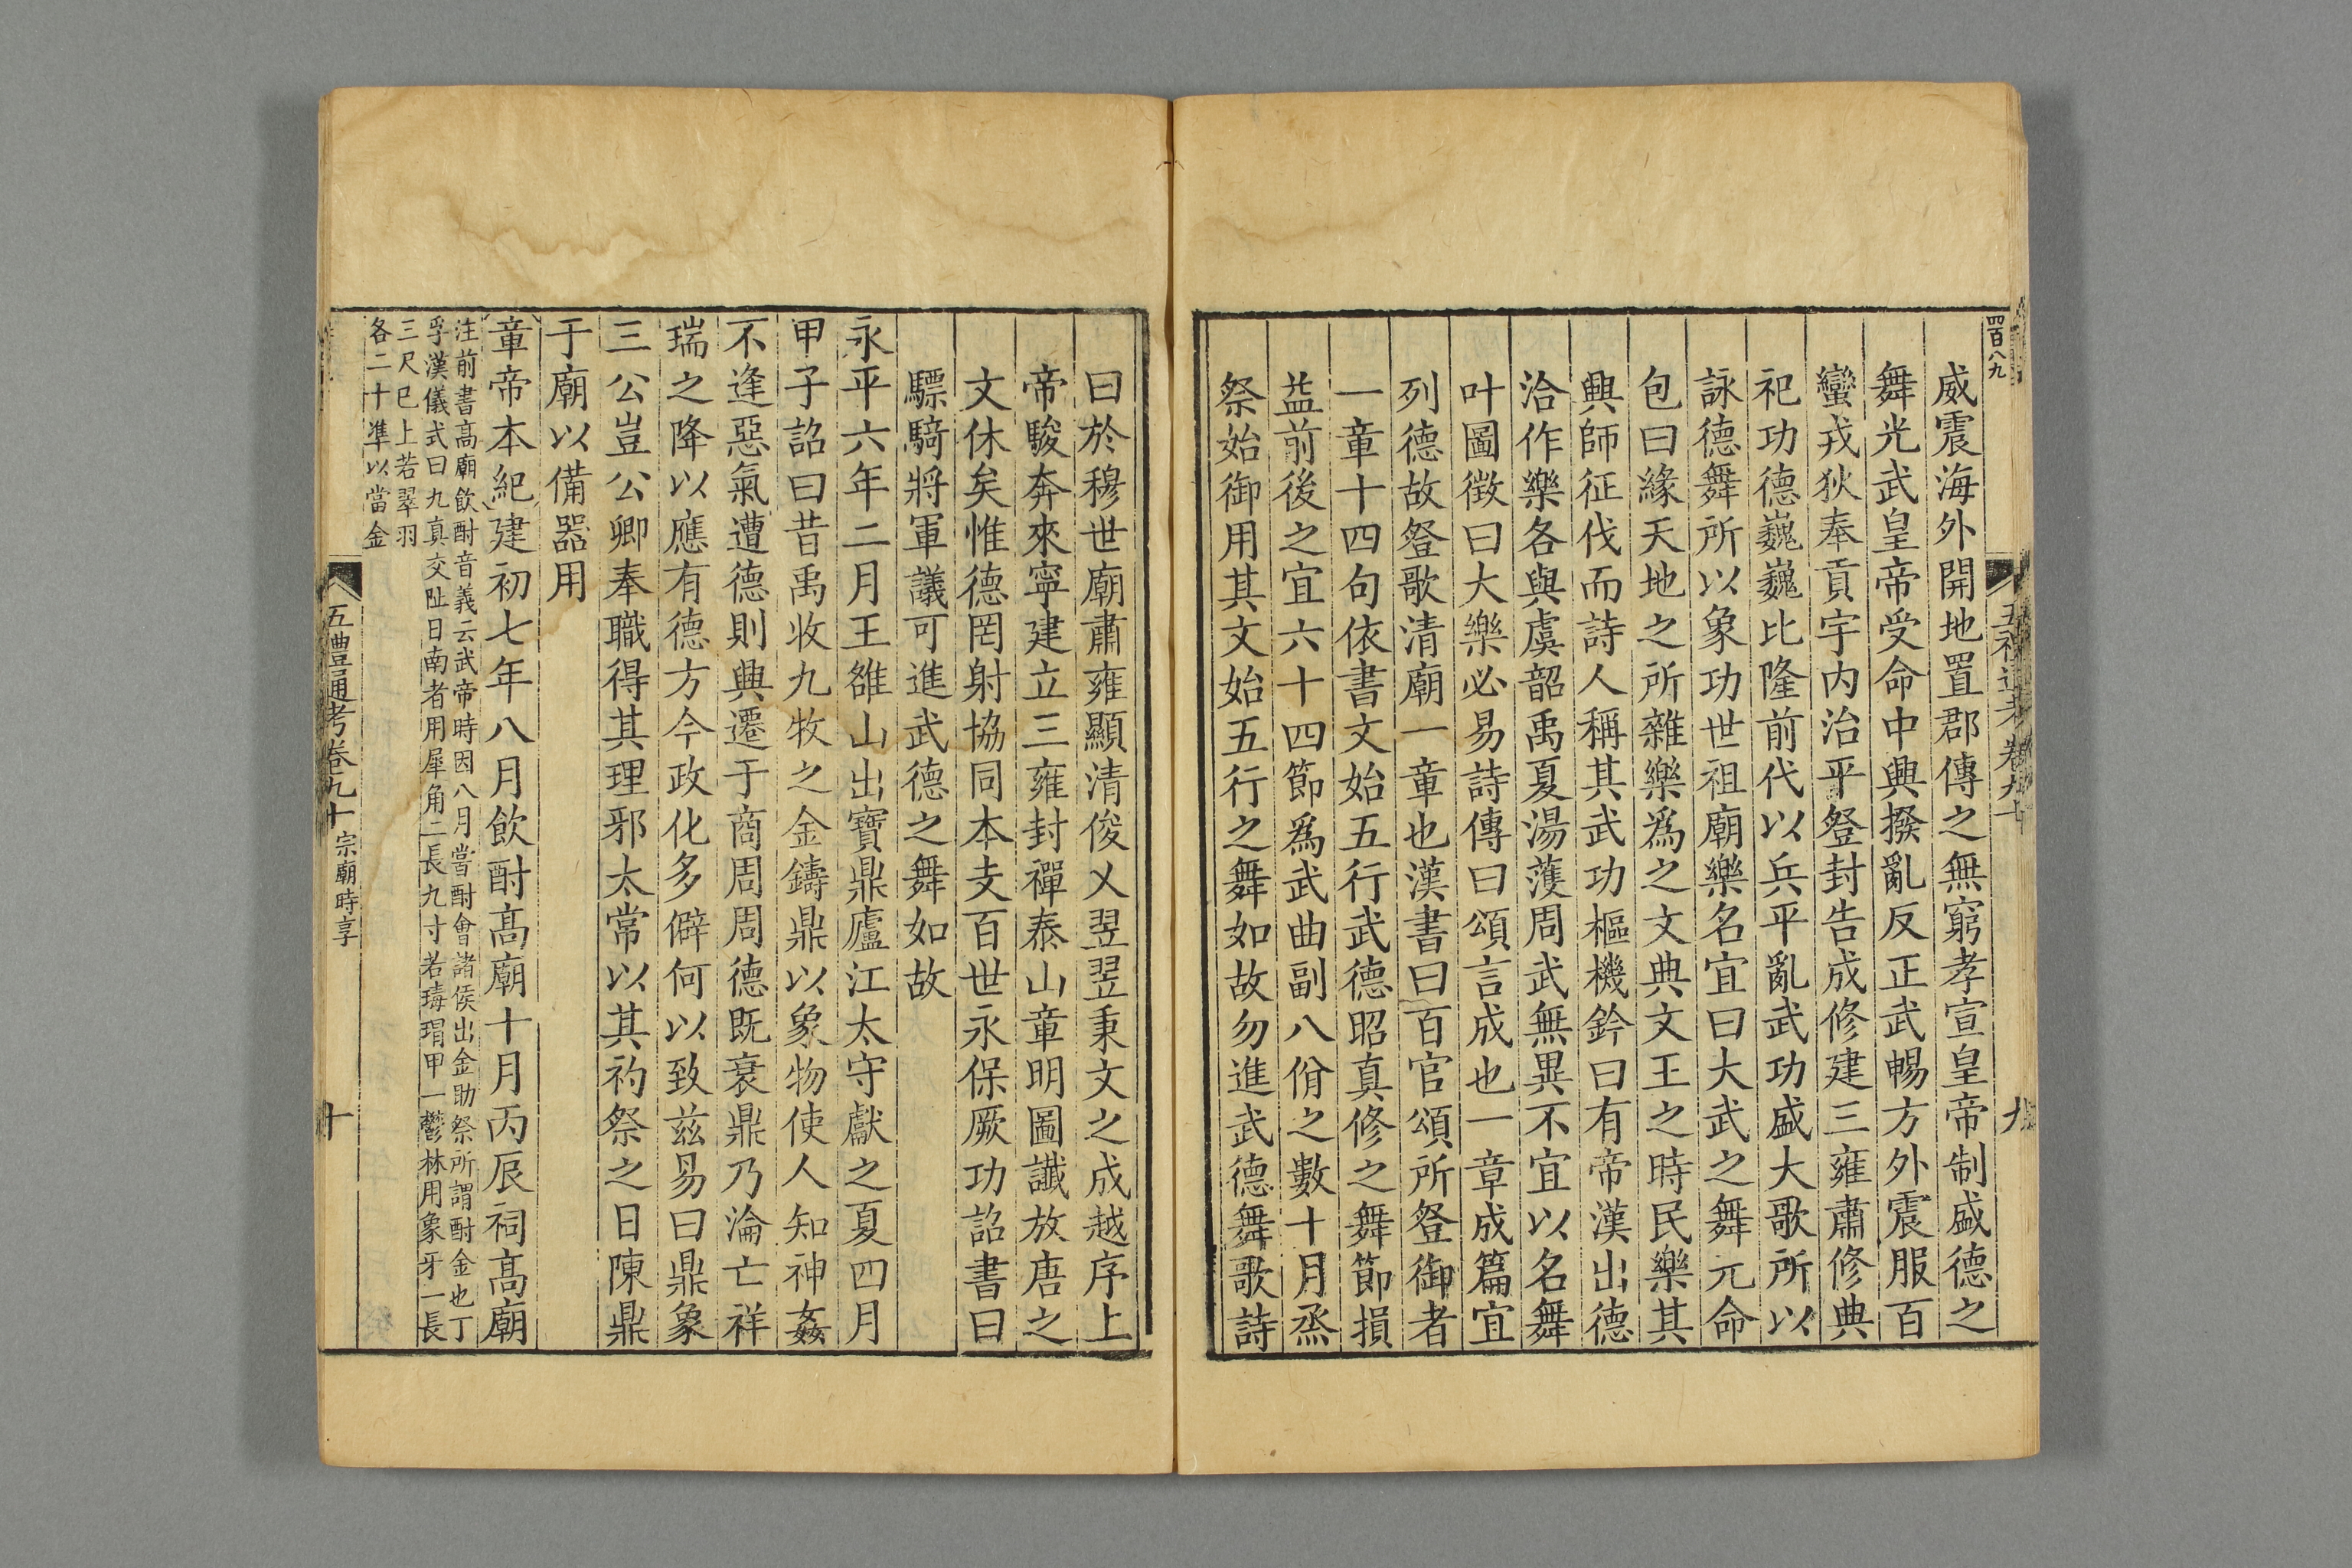 四百八九
威震海外開地置郡傳之無窮孝宣皇帝制盛德之
舞光武皇帝受命中興撥亂反正武暢方外震服百
蠻戎狄奉貢宇內治平登封告成修建三雍肅修典
祀功德巍巍比隆前代以兵平亂武功盛大歌所以
詠德舞所以象功世祖廟樂名宜曰大武之舞元命
包曰緣天地之所雜樂爲之文典文王之時民樂其
興師征伐而詩人稱其武功樞機鈐曰有帝漢出德
洽作樂各與虞韶禹夏湯護周武無異不宜以名舞
叶圖徴曰大樂必易詩傳曰頌言成也一章成篇宜
列德故登歌清廟一章也漢書曰百官頌所登御者
一章十四句依書文始五行武德昭真修之舞節損
益前後之宜六十四節爲武曲副八佾之數十月烝
祭始御用其文始五行之舞如故勿進武德舞歌詩
曰於穆世廟肅雍顯清俊乂翌翌秉文之成越序上
帝駿奔來寧建立三雍封禪泰山章明圖讖放唐之
文休矣惟德罔射協同本支百世永保厥功詔書曰
驃騎將軍議可進武德之舞如故
永平六年二月王雒山出寶鼎廬江太守獻之夏四月
甲子詔曰昔禹收九牧之金鑄鼎以象物使人知神姦
不逢惡氣遭德則興遷于商周周德既衰鼎乃淪亡祥
瑞之降以應有德方今政化多僻何以致茲易曰鼎象
三公豈公卿奉職得其理邪太常以其礿祭之日陳鼎
于廟以備器用
章帝本紀建初七年八月飲酎高廟十月丙辰祠高廟
注前書高廟飲酎音義云武帝時因八月嘗酎會諸侯出金助祭所謂酎金也丁
孚漢儀式曰九真交阯日南者用犀角二長九寸若瑇瑁甲一鬱林用象牙一長
三尺已上若翠羽
各二十準以當金
五禮通考卷九十 宗廟時享
十